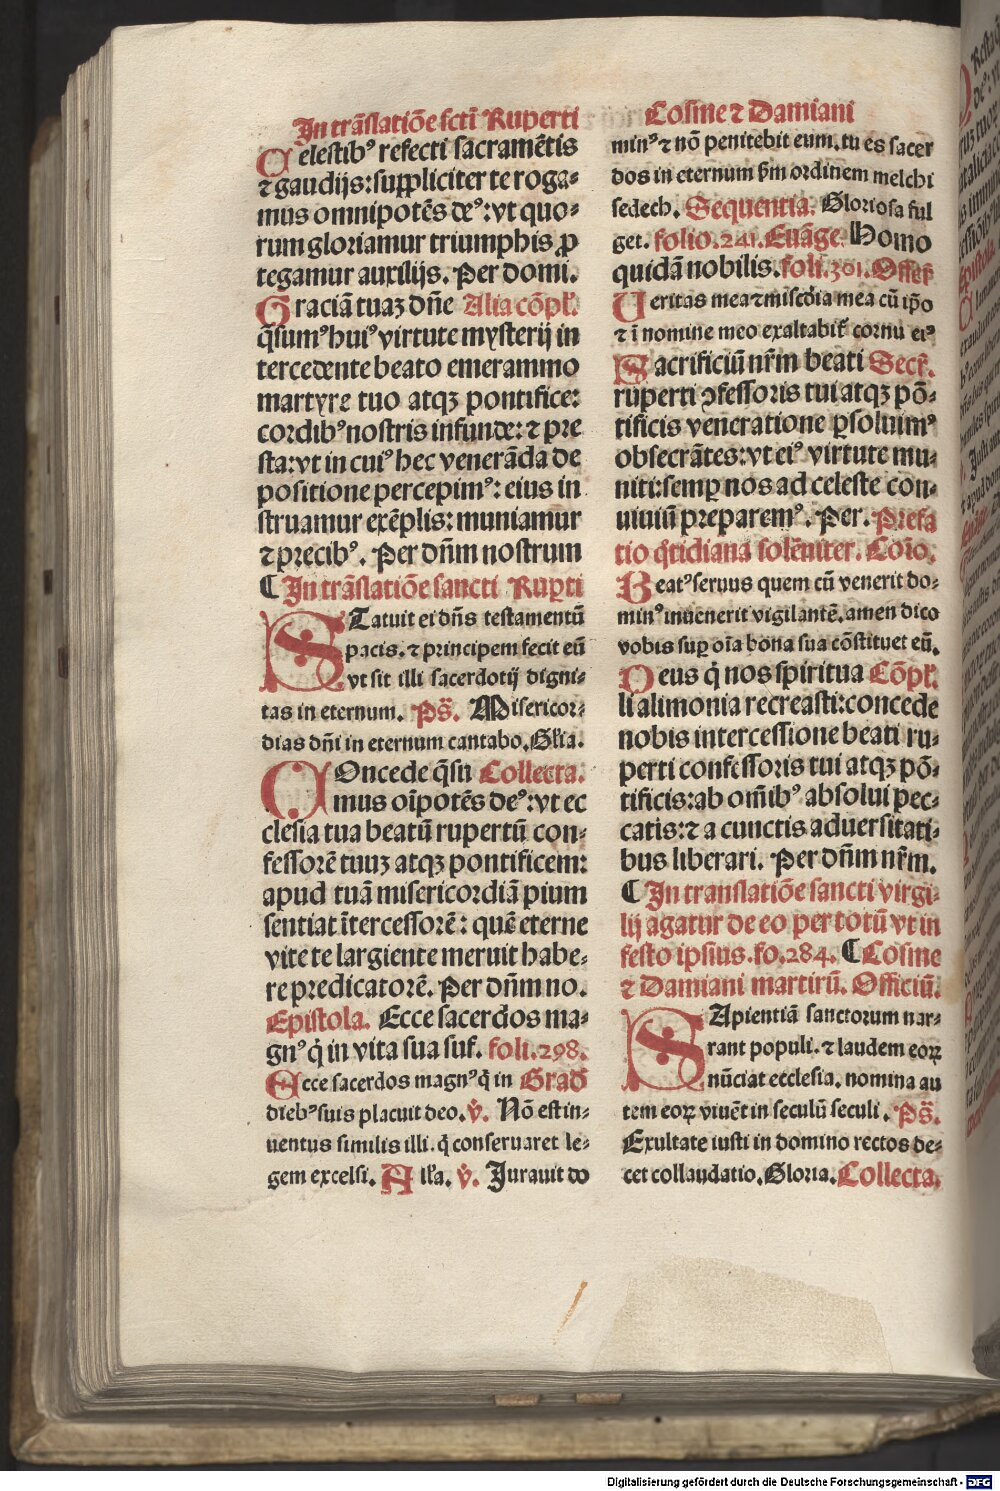 In trãslatiõe scti Ruperti
Celestibꝰ refecti sacramẽtis
⁊ gaudijs: suppliciter te roga⸗
mus omnipotẽs deꝰ: vt quo⸗
rum gloriamur triumphis ꝓ
tegamur auxilijs. Per domi.
Graciã tuaꝫ dñe Alia cõpl̃.
q̃sumꝰ huiꝰ virtute mysterij in
tercedente beato emerammo
martyre tuo atqꝫ pontifice:
cordibꝰ nostris infunde: ⁊ pre
sta: vt in cuiꝰ hec venerãda de
positione percepimꝰ: eius in
struamur exẽplis: muniamur
⁊ precibꝰ. Per dñm nostrum
¶ In trãslatiõe sancti Ruꝑti
STatuit ei dñs testamentũ
pacis. ⁊ principem fecit eũ
vt sit illi sacerdotij digni⸗
tas in eternum. Ps̃. Misericor⸗
dias dñi in eternum cantabo. Gl̃ia.
COncede q̃su Collecta.
mus oĩpotẽs deꝰ: vt ec
clesia tua beatũ rupertũ con⸗
fessorẽ tuuꝫ atqꝫ pontificem:
apud tuã misericordiã pium
sentiat ĩtercessorẽ: quẽ eterne
vite te largiente meruit habe⸗
re predicatorẽ. Per dñm no.
Epistola. Ecce sacerdos ma⸗
gnꝰ q̃ in vita sua suf. foli.298.
Ecce sacerdos magnꝰ q̃ in Grad̃
diebꝰ suis placuit deo. v̾. Nõ est in⸗
uentus similis illi. q̃ conseruaret le⸗
gem excelsi. All̃a. v̾. Jurauit do
Cosme ⁊ Damiani
minꝰ ⁊ nõ penitebit eum. tu es sacer
dos in eternum s̃m ordinem melchi
sedech. Sequentia. Gloriosa ful
get. folio.241. Euãge. Homo
quidã nobilis. foli.301. Offer̃
Ueritas mea ⁊ misc̃dia mea cũ ip̃o
⁊ ĩ nomine meo exaltabit̃ cornu eiꝰ
Sacrificiũ nr̃m beati Secr̃.
ruperti ꝯfessoris tui atqꝫ põ⸗
tificis veneratione ꝑsoluimꝰ
obsecrãtes: vt eiꝰ virtute mu⸗
niti: semꝑ nos ad celeste con⸗
uiuiũ preparemꝰ. Per. Prefa
tio q̃tidiana solẽniter. Cõio.
Beatꝰ seruus quem cũ venerit do⸗
minꝰ inuenerit vigilantẽ. amen dico
vobis suꝑ oĩa bona sua cõstituet eũ.
Deus q̃ nos spiritua Cõpl̃.
li alimonia recreasti: concede
nobis intercessione beati ru⸗
perti confessoris tui atqꝫ põ⸗
tificis: ab om̃ibꝰ absolui pec⸗
catis: ⁊ a cunctis aduersitati⸗
bus liberari. Per dñm nr̃m.
¶ In translatiõe sancti virgi⸗
lij agatur de eo per totũ vt in
festo ipsius. fo.284. ¶ Cosme
⁊ Damiani martirũ. Officiũ.
SApientiã sanctorum nar⸗
rant populi. ⁊ laudem eoꝝ
nũciat ecclesia. nomina au
tem eoꝝ viuẽt in seculũ seculi. Ps̃.
Exultate iusti in domino rectos de⸗
cet collaudatio. Gloria. Collecta.
Digitalisierung gefördert durch die Deutsche Forschungsgemeinschaft - DFG